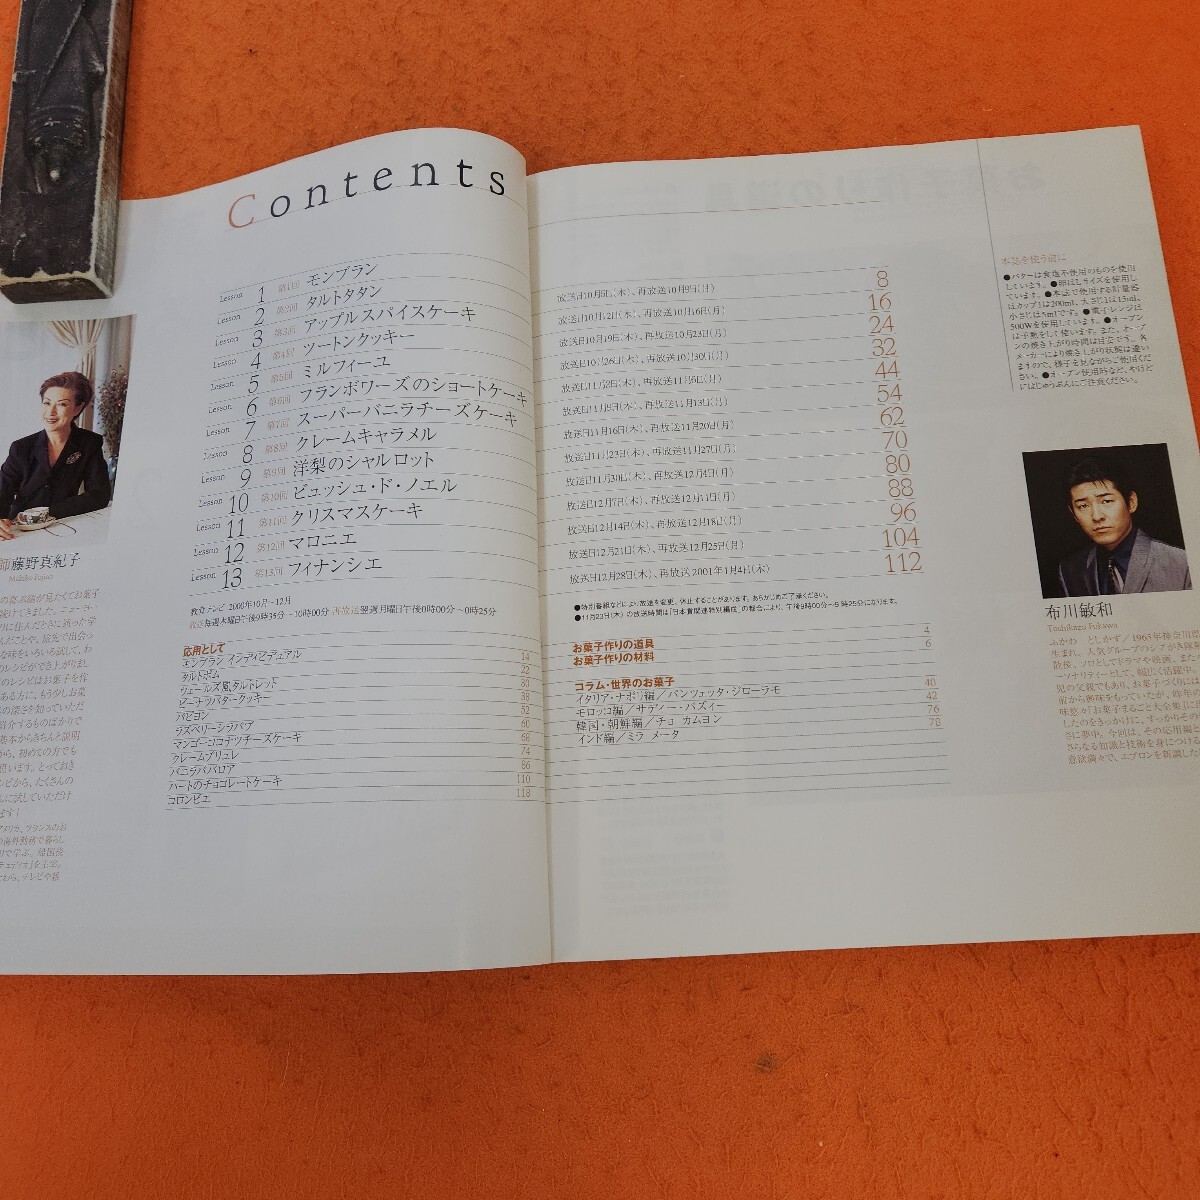 Contents
Lesson 1 第1回 モンブラン 放送日10月5日(木)、再放送10月9日(月) 8
Lesson 2 第2回 タルトタタン 放送日10月12日(木)、再放送10月16日(月) 16
Lesson 3 第3回 アップルスパイスケーキ 放送日10月19日(木)、再放送10月23日(月) 24
Lesson 4 第4回 ツートンクッキー 放送日10月26日(木)、再放送10月30日(月) 32
Lesson 5 第5回 ミルフィーユ 放送日11月2日(木)、再放送11月6日(月) 44
Lesson 6 第6回 フランボワーズのショートケーキ 放送日11月9日(木)、再放送11月13日(月) 54
Lesson 7 第7回 スーパーバニラチーズケーキ 放送日11月16日(木)、再放送11月20日(月) 62
Lesson 8 第8回 クレームキャラメル 放送日11月23日(木)、再放送11月27日(月) 70
Lesson 9 第9回 洋梨のシャルロット 放送日11月30日(木)、再放送12月4日(月) 80
Lesson 10 第10回 ビュッシュ・ド・ノエル 放送日12月7日(木)、再放送12月11日(月) 88
Lesson 11 第11回 クリスマスケーキ 放送日12月14日(木)、再放送12月18日(月) 96
Lesson 12 第12回 マロニエ 放送日12月21日(木)、再放送12月25日(月) 104
Lesson 13 第13回 フィナンシエ 放送日12月28日(木)、再放送2001年1月4日(木) 112
教育テレビ 2000年10月~12月
放送 毎週木曜日午後9時35分~10時00分 再放送 翌週月曜日午後0時00分~0時25分
●特別番組などにより放送を変更、休止することがあります。あらかじめご了承ください。
●11月23日(木)の放送時間は「日本賞関連特別編成」の都合により、午後9時00分~9時25分になります。
応用として
モンブラン インディビデュアル 14
タルトポム 22
ウェールズ風タルトレット 30
ピーナツバタークッキー 38
パピヨン 52
ラズベリーシラババア 60
マンゴーココナツチーズケーキ 68
クレームブリュレ 74
バニラババロア 86
ハートのチョコレートケーキ 110
コロンビエ 118
お菓子作りの道具 4
お菓子作りの材料 6
コラム・世界のお菓子
イタリア・ナポリ編/パンツェッタ・ジローラモ 40
モロッコ編/サディー・バズィー 42
韓国・朝鮮編/チョ カムヨン 76
インド編/ミラ メータ 78
本誌を使う前に
●バターは食塩不使用のものを使用
しています。●卵はLサイズを使用し
ています。●本誌で使用する計量器
はカップ1は200ml、大さじ1は15ml、
小さじは5mlです。●電子レンジは
500Wを使用しています。●オーブン
は予熱をして使います。また、オーブ
ンの焼き上がり時間は目安です。各
メーカーにより焼き上がり状態は違い
ますので、様子を見ながらご使用くだ
さい。●オーブン使用時など、やけど
にはじゅうぶんにご注意ください。
師 藤野真紀子
Makiko Fujino
布川敏和
Toshikazu Fukawa
ふかわ としかず/1965年神奈川県
生まれ。人気グループのシブがき隊解
散後、ソロとしてドラマや映画、またパ
ーソナリティーとして、幅広く活躍中。
児の父親でもあり、お菓子づくりには
前から興味をもっていたが、昨年の
味悠々「お菓子まるごと大全集」に出
したのをきっかけに、すっかりその
さに夢中。今回は、その応用編と
さらなる知識と技術を身につける
意欲満々で、エプロンを新調した